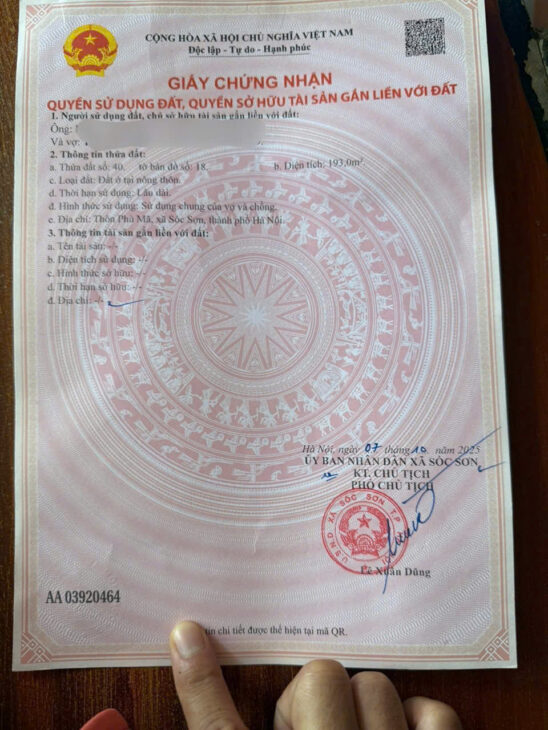 CỘNG HÒA XÃ HỘI CHỦ NGHĨA VIỆT NAM
Độc lập - Tự do - Hạnh phúc
GIẤY CHỨNG NHẬN
QUYỀN SỬ DỤNG ĐẤT, QUYỀN SỞ HỮU TÀI SẢN GẮN LIỀN VỚI ĐẤT
1. Người sử dụng đất, chủ sở hữu tài sản gắn liền với đất:
Ông:
Và vợ:
2. Thông tin thửa đất:
a. Thửa đất số: 40. tờ bản đồ số: 18. b. Diện tích: 193,0m².
c. Loại đất: Đất ở tại nông thôn.
d. Thời hạn sử dụng: Lâu dài.
đ. Hình thức sử dụng: Sử dụng chung của vợ và chồng.
e. Địa chỉ: Thôn Phù Mã, xã Sóc Sơn, thành phố Hà Nội.
3. Thông tin tài sản gắn liền với đất:
a. Tên tài sản: -/-
b. Diện tích sử dụng: -/-
c. Hình thức sở hữu: -/-
d. Thời hạn sở hữu: -/-
đ. Địa chỉ: -/-
Hà Nội, ngày 07 tháng 10 năm 2025
ỦY BAN NHÂN DÂN XÃ SÓC SƠN
KT. CHỦ TỊCH
PHÓ CHỦ TỊCH
U.B.N.D XÃ SÓC SƠN T.P
Lê Xuân Dũng
AA 03920464
tin chi tiết được thể hiện tại mã QR.